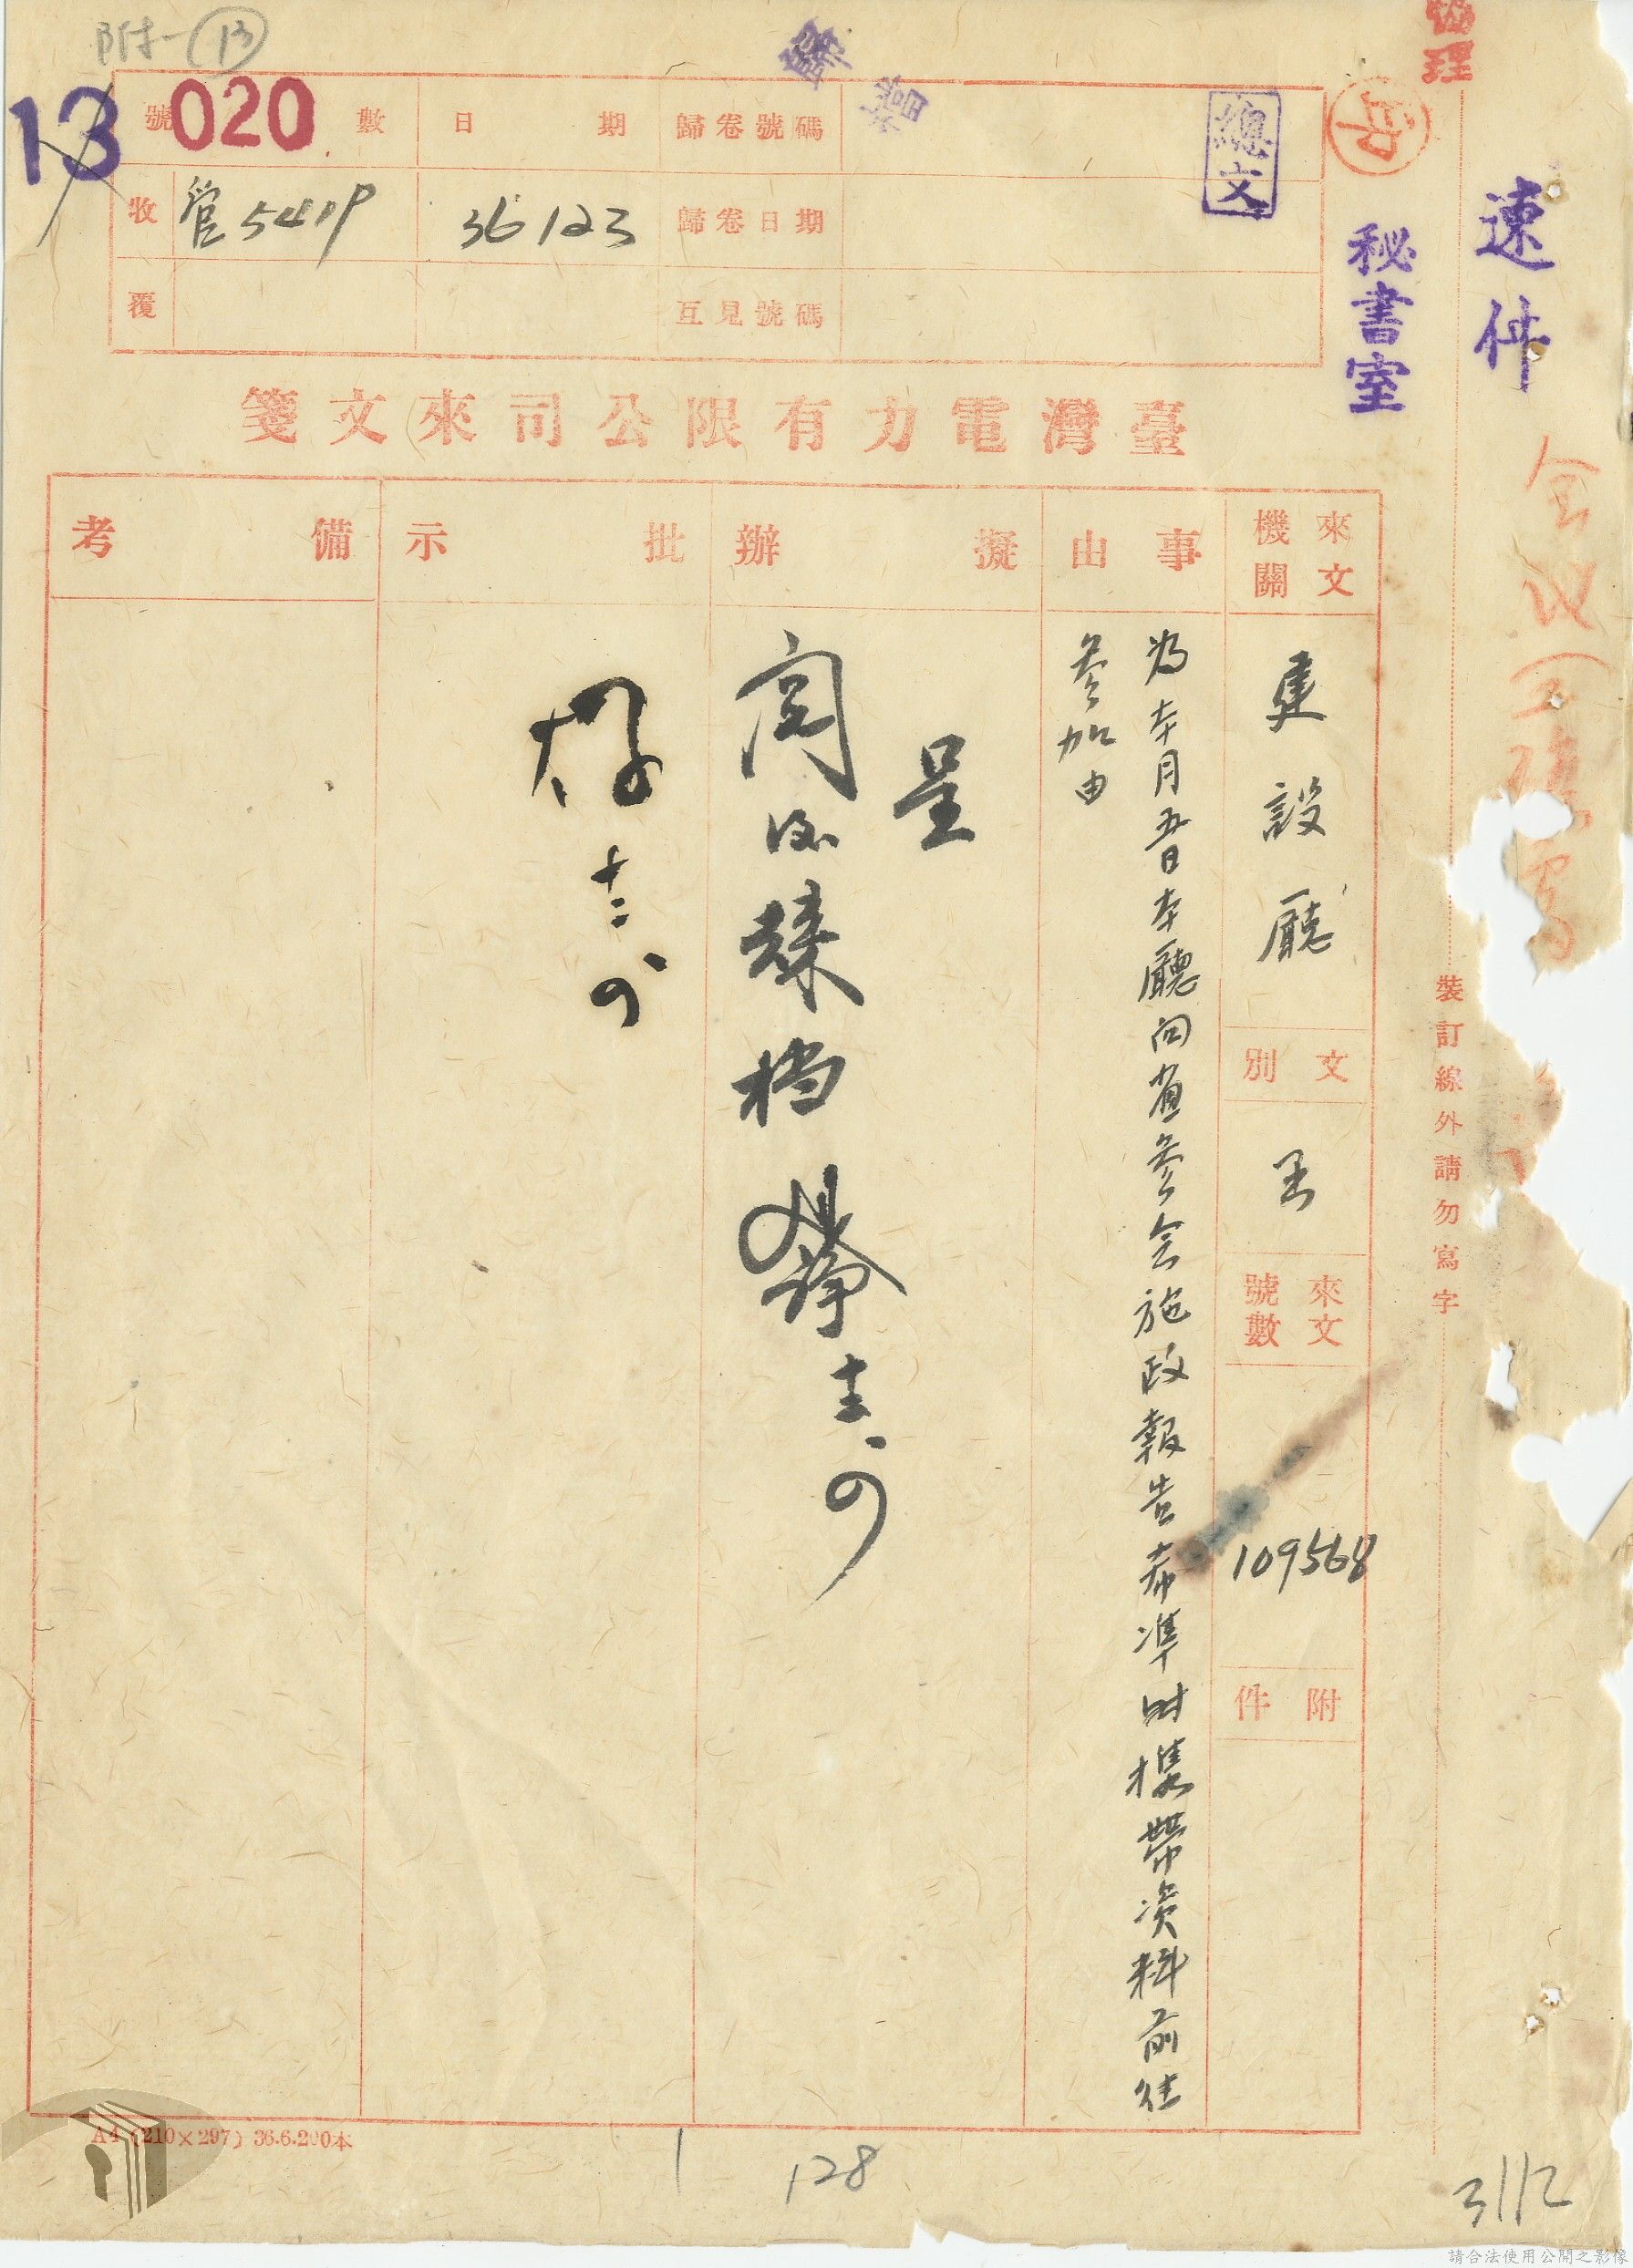 附-(13)
13
020
號 數
日 期
歸卷號碼
歸檔
總文
速件
秘書室
收
管5419
36 12 3
歸卷日期
覆
互見號碼
臺灣電力有限公司來文箋
來文機關
建設廳
文別
來文號數
109568
附件
事由
為本月五日本廳向省參會施政報告希準時攜帶資料前往
參加由
擬辦
呈
閱後歸檔
批示
存
十二、
備考
裝訂線外請勿寫字
A4 (210×297) 36.6.200本
128
3112
請合法使用公開之影像